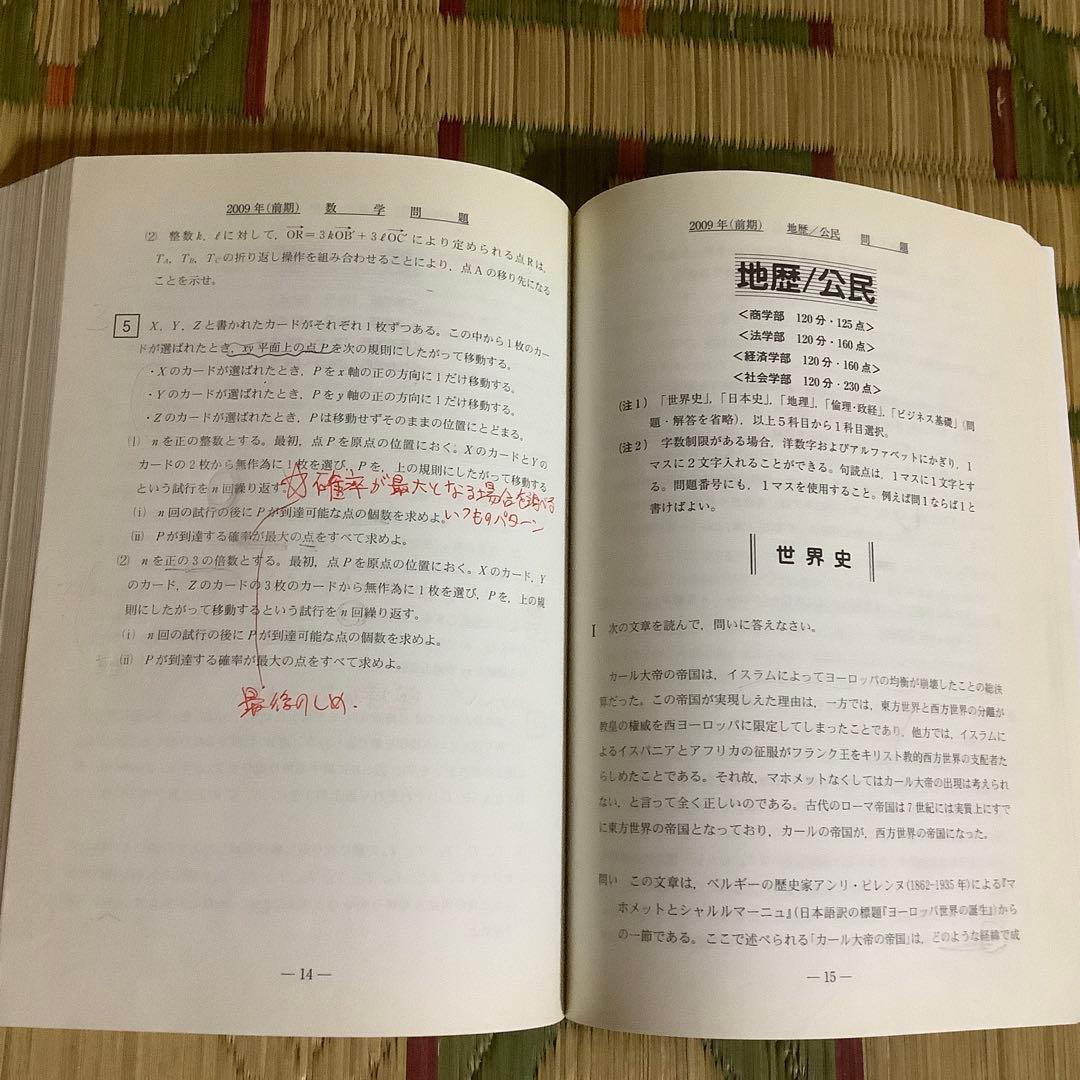 2009年(前期)　数　学　問　題
(2)　整数k, ℓに対して, OR＝3kOB′＋3ℓOC′により定められる点Rは,
T_A, T_B, T_Cの折り返し操作を組み合わせることにより, 点Aの移り先になる
ことを示せ。
5　X, Y, Zと書かれたカードがそれぞれ1枚ずつある。この中から1枚のカー
ドが選ばれたとき, xy平面上の点Pを次の規則にしたがって移動する。
・Xのカードが選ばれたとき, Pをx軸の正の方向に1だけ移動する。
・Yのカードが選ばれたとき, Pをy軸の正の方向に1だけ移動する。
・Zのカードが選ばれたとき, Pは移動せずそのままの位置にとどまる。
(1)　nを正の整数とする。最初, 点Pを原点の位置におく。XのカードとYの
カードの2枚から無作為に1枚を選び, Pを, 上の規則にしたがって移動する
という試行をn回繰り返す。
☆確率が最大となる場合を
(i)　n回の試行の後にPが到達可能な点の個数を求めよ。
いつものパターン
(ii)　Pが到達する確率が最大の点をすべて求めよ。
(2)　nを正の3の倍数とする。最初, 点Pを原点の位置におく。Xのカード, Y
のカード, Zのカードの3枚のカードから無作為に1枚を選び, Pを, 上の規
則にしたがって移動するという試行をn回繰り返す。
(i)　n回の試行の後にPが到達可能な点の個数を求めよ。
(ii)　Pが到達する確率が最大の点をすべて求めよ。
最後のしめ.
―14―
2009年(前期)　地歴/公民　問　題
地歴/公民
<商学部　120分・125点>
<法学部　120分・160点>
<経済学部　120分・160点>
<社会学部　120分・230点>
(注1)　「世界史」,「日本史」,「地理」,「倫理・政経」,「ビジネス基礎」(問
題・解答を省略), 以上5科目から1科目選択。
(注2)　字数制限がある場合, 洋数字およびアルファベットにかぎり, 1
マスに2文字入れることができる。句読点は, 1マスに1文字とす
る。問題番号にも, 1マスを使用すること。例えば問1ならば1と
書けばよい。
世界史
I　次の文章を読んで, 問いに答えなさい。
カール大帝の帝国は, イスラムによってヨーロッパの均衡が崩壊したことの総決
算だった。この帝国が実現しえた理由は, 一方では, 東方世界と西方世界の分離が
教皇の権威を西ヨーロッパに限定してしまったことであり, 他方では, イスラムに
よるイスパニアとアフリカの征服がフランク王をキリスト教的西方世界の支配者た
らしめたことである。それ故, マホメットなくしてはカール大帝の出現は考えられ
ない, と言って全く正しいのである。古代のローマ帝国は7世紀には実質上にすで
に東方世界の帝国となっており, カールの帝国が, 西方世界の帝国になった。
問い　この文章は, ベルギーの歴史家アンリ・ピレンヌ(1862-1935年)による『マ
ホメットとシャルルマーニュ』(日本語訳の標題『ヨーロッパ世界の誕生』)から
の一節である。ここで述べられる「カール大帝の帝国」は, どのような経緯で成
―15―